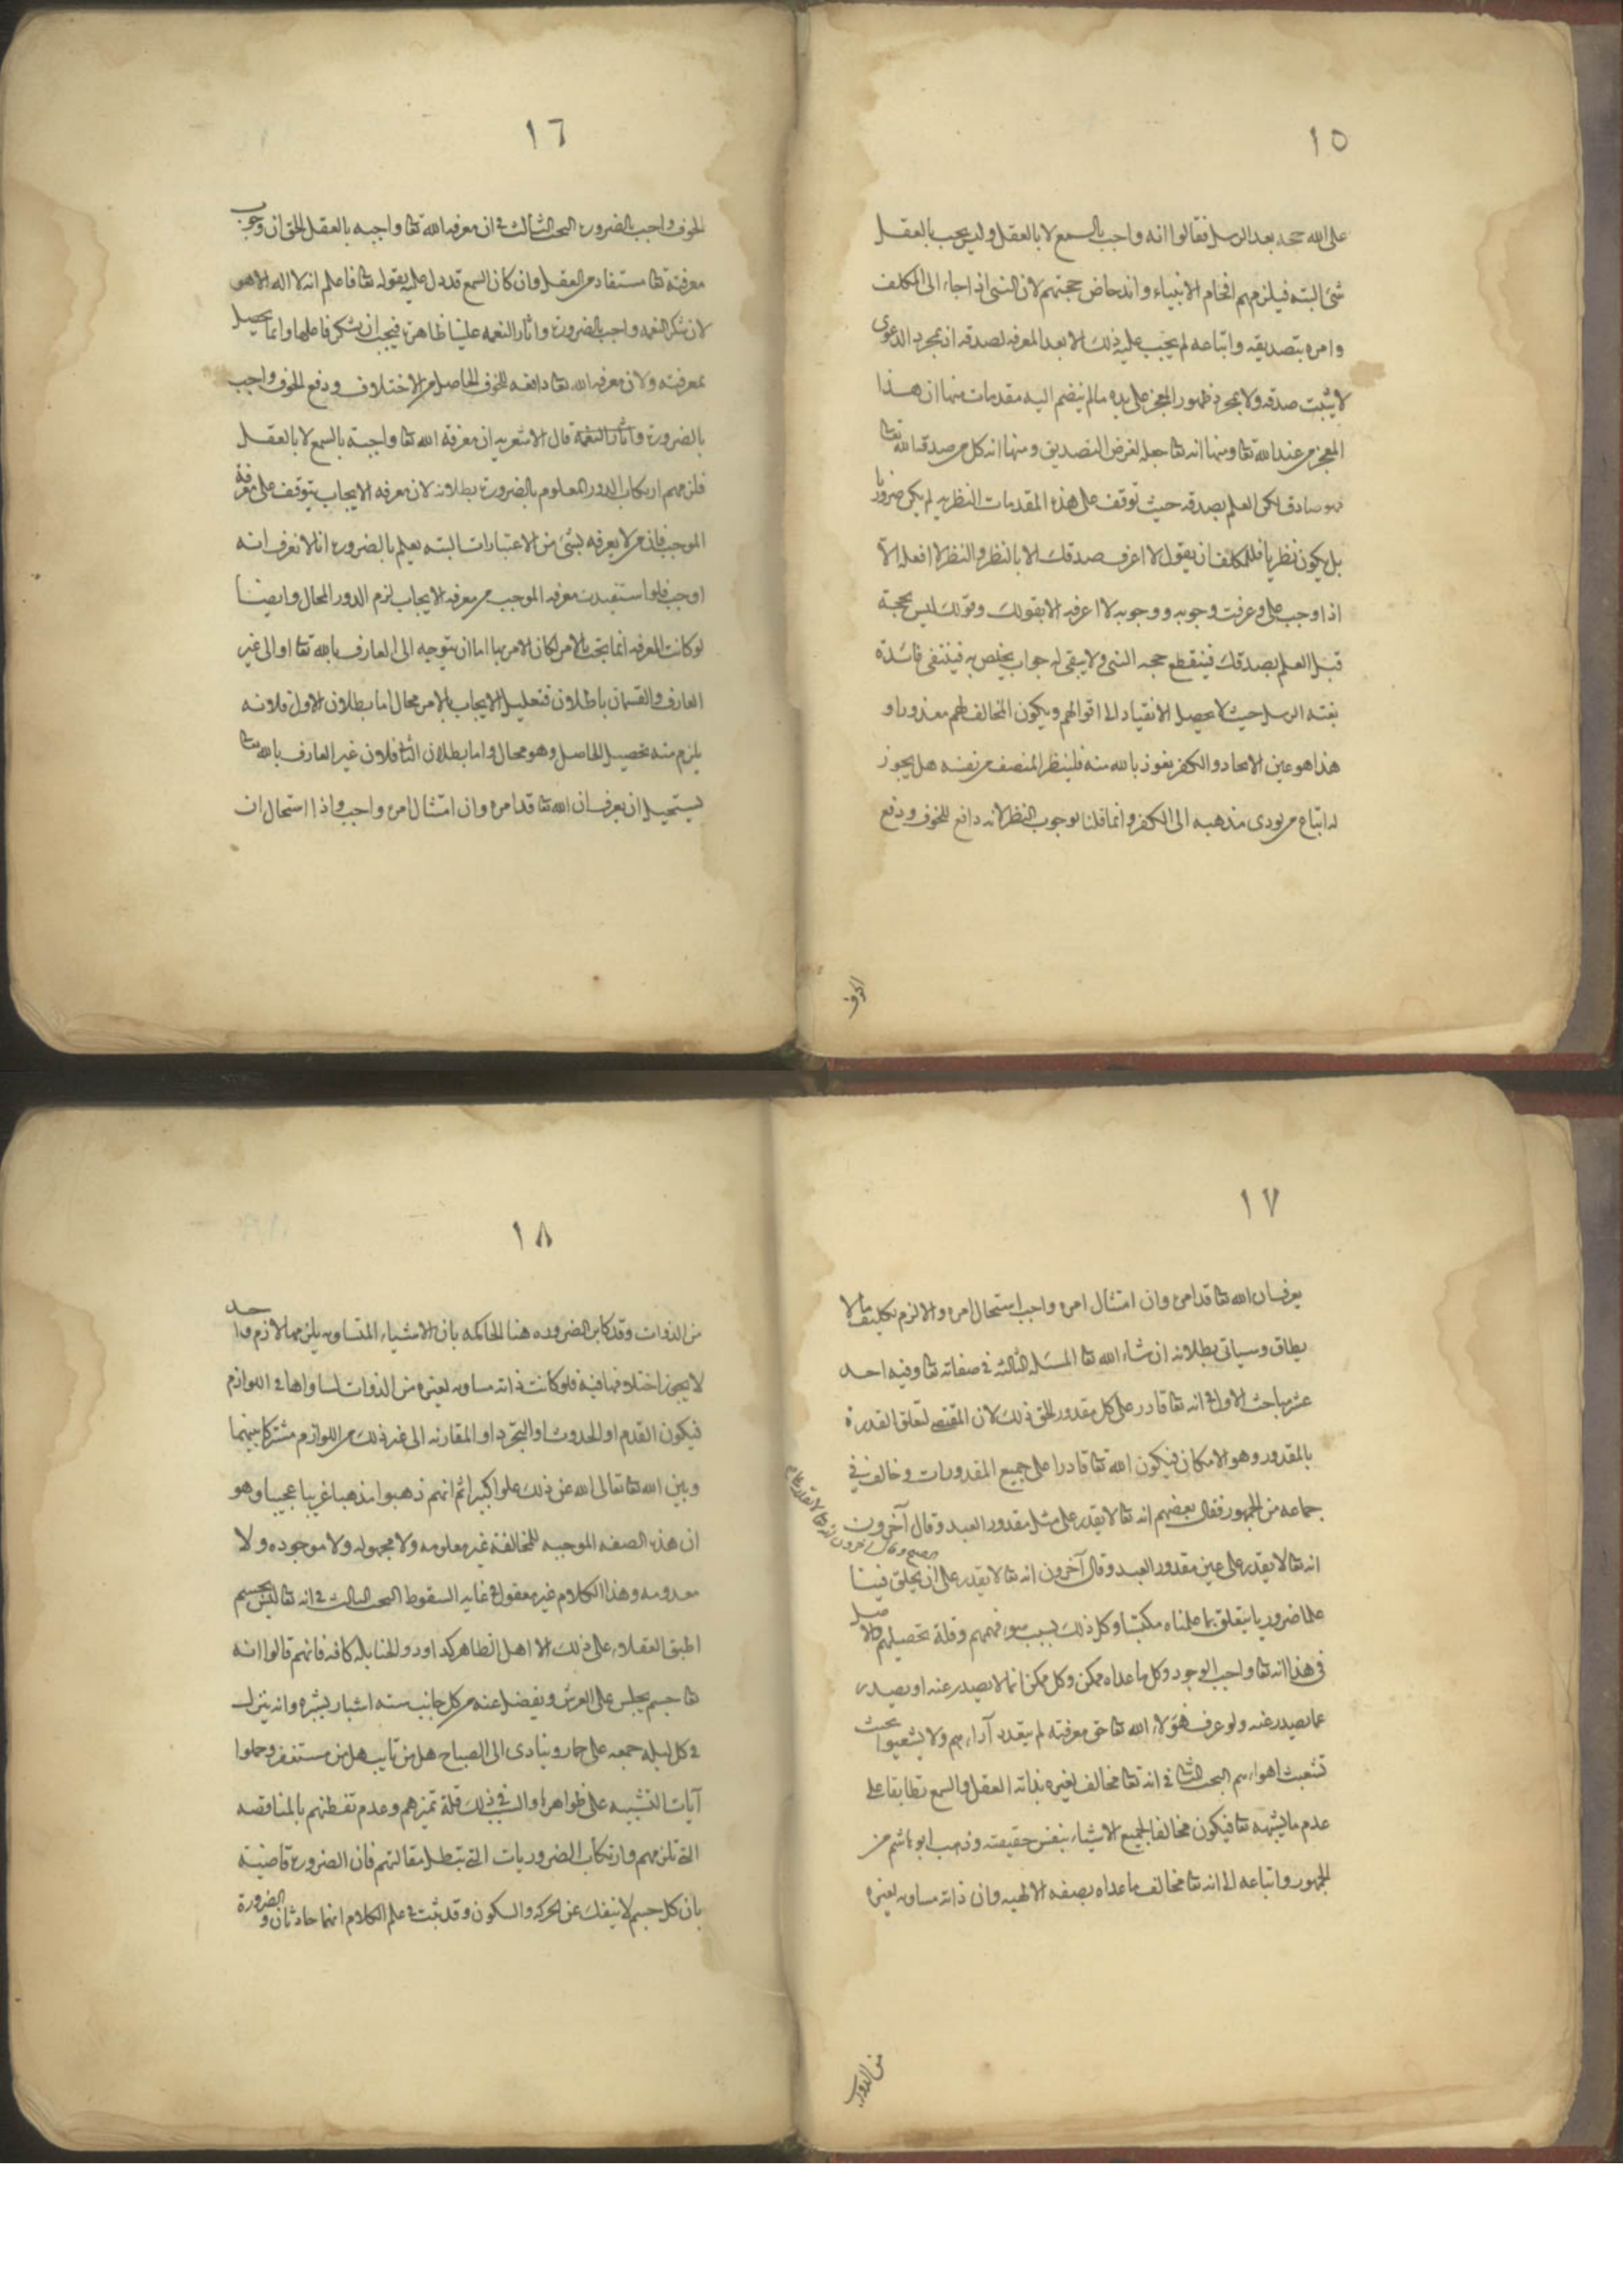 ١٥
على الله حجة بعد الرسل فقالوا انه واجب بالسمع لا بالعقل وليس يجب بالعقل
شئ البتة فيلزمهم افحام الانبياء واندحاض حجتهم لان النبى اذا جاء الى المكلف
وامره بتصديقه واتباعه لم يجب عليه ذلك الا بعد المعرفه لصدقه اذ بمجرد الدعوى
لا يثبت صدقه ولا بمجرد ظهور المعجز على يده ما لم ينضم اليه مقدمات منها ان هذا
المعجز من عند الله تعا ومنها انه تعا جعله لغرض التصديق ومنها انه كل من صدقه الله تعا
فهو صادق لكن العلم بصدقه حيث توقف على هذه المقدمات النظريه لم يكن ضروريا
بل يكون نظريا فللمكلف ان يقول لا اعرف صدقك الا بالنظر والنظر لا افعله الا
اذا وجب على وعرفت وجوبه ووجوبه لا اعرفه الا بقولك وقولك ليس بحجة
قبل العلم بصدقك فينقطع حجه النبى ولا يبقى له جواب يخلص به فينتفى فائدة
بعثه الرسل حيث لا يحصل الانقياد الى اقوالهم ويكون المخالف لهم معذورا و
هذا هو عين الالحاد والكفر نعوذ بالله منه فلينظر المنصف من نفسه هل يجوز
له اتباع من يودى مذهبه الى الكفر وانما قلنا بوجوب النظر لانه دافع للخوف ودفع
الخوف
١٦
الخوف واجب بالضروره البحث الثالث فى ان معرفه الله تعا واجبه بالعقل الحق ان وجوب
معرفته تعا مستفاد من العقل وان كان السمع قد دل عليه بقوله تعا فاعلم انه لا اله الا هو
لان شكر النعمه واجب بالضروره واثار النعمه علينا ظاهرة فيجب ان يشكر فاعلها وانما يحصل
بمعرفته ولان معرفه الله تعا دافعه للخوف الحاصل من الاختلاف ودفع الخوف واجب
بالضروره واثار النعمة قال الاشعريه ان معرفة الله تعا واجبة بالسمع لا بالعقل
فلزمهم ارتكاب الدور المعلوم بالضروره بطلانه لان معرفه الايجاب يتوقف على معرفة
الموجب فان من لا يعرفه بشئ من الاعتبارات البته يعلم بالضروره انا لا نعرف انه
اوجب فلو استفيدت معرفه الموجب من معرفه الايجاب لزم الدور المحال وايضا
لو كانت المعرفه انما تجب بالامر لكان الامر بها اما ان يتوجه الى العارف بالله تعا او الى غير
العارف والقسمان باطلان فتعليل الايجاب بالامر محال اما بطلان الاول فلانه
يلزم منه تحصيل الحاصل وهو محال واما بطلان الثانى فلان غير العارف بالله تعا
يستحيل ان يعرف ان الله تعا قد امره وان امتثال امره واجب واذا استحال ان
١٧
يعرف ان الله تعا قد امره وان امتثال امره واجب استحال امره والا لزم تكليف ما لا
يطاق وسياتى بطلانه ان شاء الله تعا المسئله الثالثه فى صفاته تعا وفيه احد
عشر مباحث الاول فى انه تعا قادر على كل مقدور الحق ذلك لان المقتضى لتعلق القدرة
بالمقدور وهو الامكان فيكون الله تعا قادرا على جميع المقدورات وخالف فى
جماعه من الجمهور فقال بعضهم انه تعا لا يقدر على مثل مقدور العبد وقال آخرون
انه تعا لا يقدر على عين مقدور العبد وقال آخرون انه تعا لا يقدر على ان يخلق فينا
علما ضروريا يتعلق بما علمناه مكتسبا وكل ذلك بسبب سوء فهمهم وقلة تحصيلهم والاصل
فى هذا انه تعا واجب الوجود وكل ما عداه ممكن وكل ممكن انما لا يصدر عنه او يصدر
عما يصدر عنه ولو عرف هؤلاء الله تعا حق معرفته لم يتعدد آراءهم ولا يشعبوا بحث
تشعبت اهواءهم البحث الثانى فى انه تعا مخالف لغيره بذاته العقل والسمع تطابقا على
عدم ما يشبهه تعا فيكون مخالفا لجميع الاشياء بنفس حقيقته وذهب ابو هاشم من
الجمهور واتباعه الى انه تعا مخالف ما عداه بصفه الالهيه وان ذاته مساويه لغيره
من الذوات
١٨
من الذوات وقد كابر الضروره هنا الحاكمه بان الاشياء المتساويه يلزمها لازم واحد
لا يجوز اختلافها فيه فلو كانت ذاته مساويه لغيره من الذوات لساواها فى اللوازم
فيكون القدم او الحدوث او التجرد او المقارنه الى غير ذلك من اللوازم مشتركا بينهما
وبين الله تعا تعالى الله عن ذلك علوا كبيرا ثم انهم ذهبوا مذهبا غريبا عجيبا وهو
ان هذه الصفه الموجبه للمخالفة غير معلومه ولا مجهوله ولا موجوده ولا
معدومه وهذا الكلام غير معقول فى غايه السقوط البحث الثالث فى انه تعا ليس بجسم
اطبق العقلاء على ذلك الا اهل الظاهر كداود والحنابله كافه فانهم قالوا انه
تعا جسم يجلس على العرش ويفضل عنه من كل جانب سته اشبار بشبره وانه ينزل
فى كل ليله جمعه على حمار وينادى الى الصباح هل من تايب هل من مستغفر وحملوا
آيات التشبيه على ظواهرها والسبب فى ذلك قلة تميزهم وعدم تفطنهم بالمناقضه
التى تلزمهم وارتكاب الضروريات التى تبطل مقالتهم فان الضروره قاضية
بان كل جسم لا ينفك عن الحركه والسكون وقد ثبت فى علم الكلام انهما حادثان والضرورة